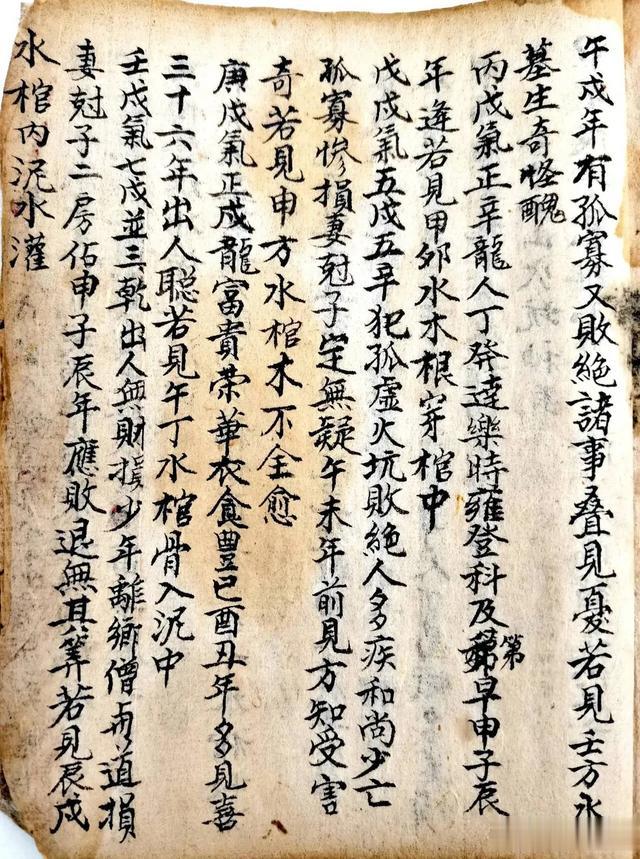 午戍年有孤寡又敗絕諸事叠見憂若見壬方水
墓生奇怪醜
丙戍氣正辛龍人丁發達樂時雍登科及第早申子辰
年逢若見甲卯水木根穿棺中
戊戍氣五戍五辛犯孤虛火坑敗絕人多疾和尚少亡
孤寡慘損妻尅子定無疑午未年前見方知受害
奇若見申方水棺木不全愈
庚戍氣正戍龍富貴荣華衣食豊巳酉丑年多見喜
三十六年出人聡若見午丁水棺骨入泥中
壬戍氣七戍並三乾出人無財損少年離鄉僧与道損
妻尅子二房佔申子辰年應敗退無其筭若見辰戍
水棺内泥水灌